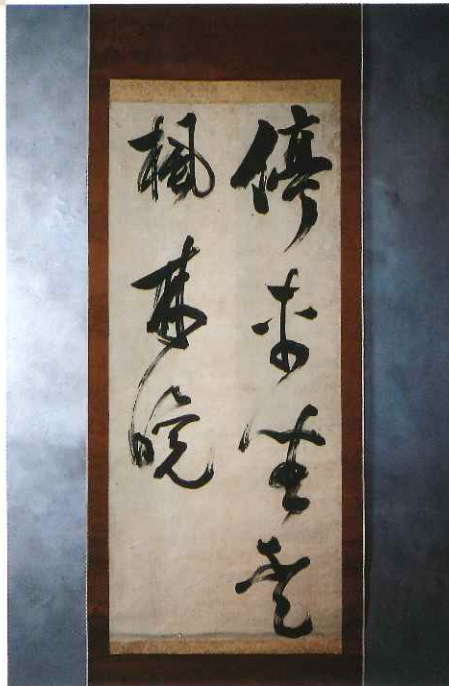 停車坐愛
楓林晩